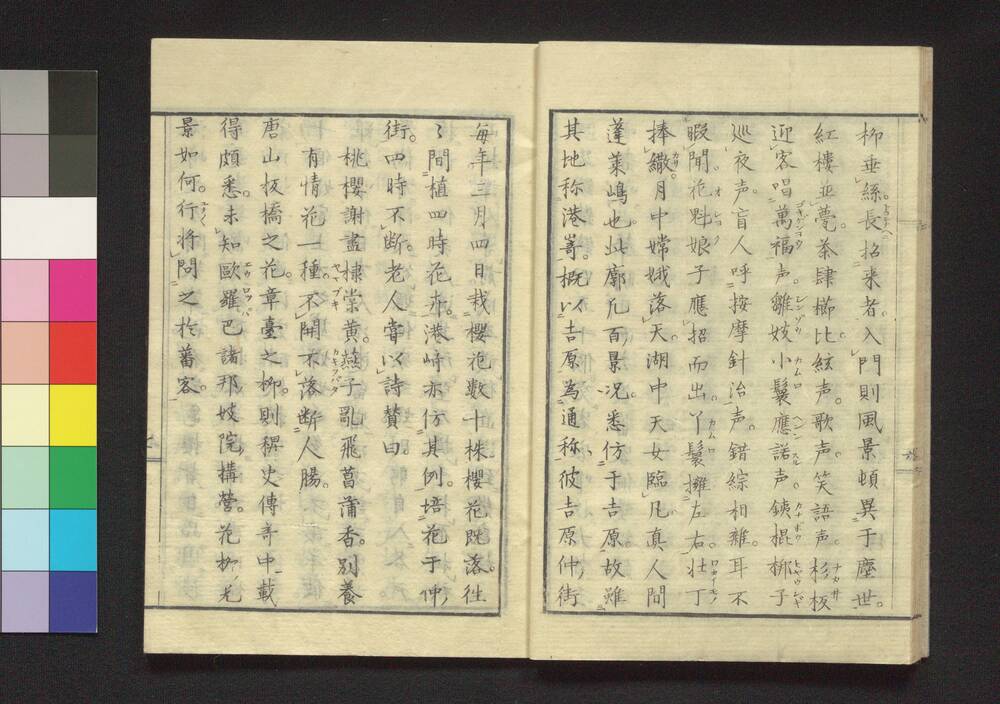 柳垂絲長招来者入門則風景頓異于塵世
紅樓並甍茶肆櫛比絃声歌声笑語声杉板
迎客唱萬福声雛妓小鬟應諾声鉄棍柳子
巡夜声盲人呼按摩針治声錯綜相雜耳不
暇聞花魁娘子應招而出丫鬟擁左右壮丁
捧繖月中嫦娥落天湖中天女臨凡真人間
蓬莱嶋也此廓凡百景况悉仿于吉原故雖
其地称港嵜概以吉原為通称彼吉原仲街
毎年三月四日栽櫻花数十株櫻花既落徃
〻間植四時花卉港崎亦仿其例培花于仲
街四時不断老人嘗以詩賛曰
桃櫻謝盡棣棠黄燕子亂飛菖蒲香別養
有情花一種不開不落断人腸
唐山板橋之花章臺之柳則稗史傳奇中載
得頗悉未知歐羅巴諸邦妓院構營花柳光
景如何行将問之於蕃客